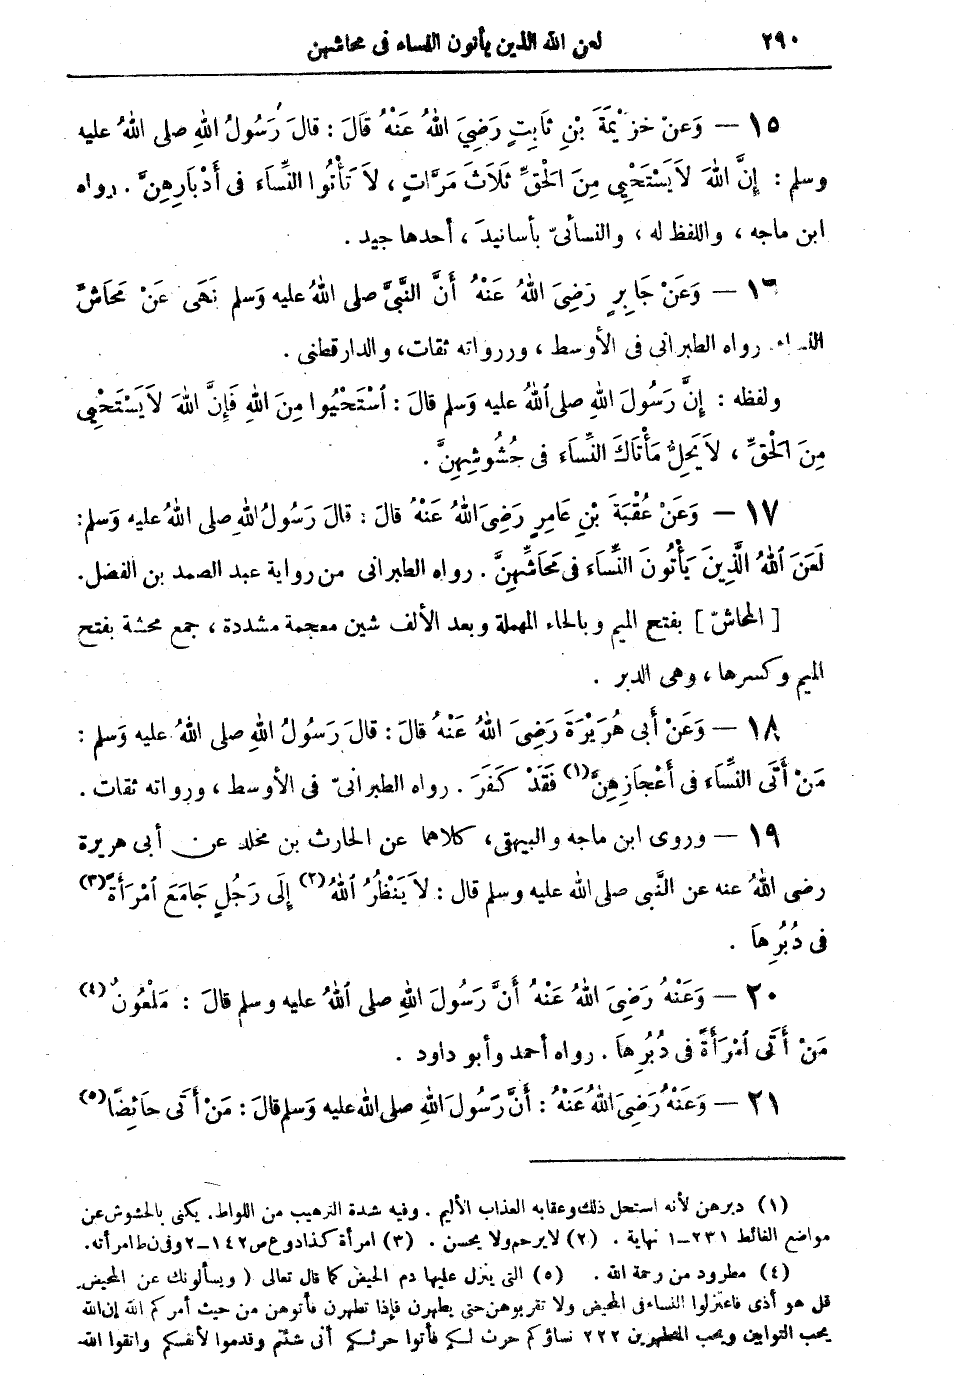 ٢٩٠ لعن الله الذين يأتون النساء فى محاشهن
١٥ — وَعَنْ خزَيْمَةَ بْنِ ثَابِتٍ رَضِيَ اللهُ عَنْهُ قَالَ : قالَ رَسُولُ اللهِ صلى اللهُ عليه
وسلم : إِنَّ اللهَ لاَ يَسْتَحْيِى مِنَ الْحَقِّ ثَلاَثَ مَرَّاتٍ ، لاَ تَأْتُوا النِّسَاءَ فى أَدْبَارِهِنَّ . رواه
ابن ماجه ، واللفظ له ، والنسائىّ بأسانيدَ ، أحدها جيد .
١٦ — وَعَنْ جَابِرٍ رَضِيَ اللهُ عَنْهُ أَنَّ النَّبِيَّ صلى اللهُ عليه وَسلم نَهَى عَنْ مَحَاشِّ
النساء . رواه الطبرانى فى الأوسط ، ورواته ثقات ، والدارقطنى .
ولفظه : إِنَّ رَسُولَ اللهِ صلى اللهُ عليه وَسلم قالَ : اسْتَحْيُوا مِنَ اللهِ فَإِنَّ اللهَ لاَ يَسْتَحْيِى
مِنَ الْحَقِّ ، لاَ يَحِلُّ مَأْتَاكَ النِّسَاءَ فى حُشُوشِهِنَّ .
١٧ — وَعَنْ عُقْبَةَ بْنِ عَامِرٍ رَضِيَ اللهُ عَنْهُ قالَ : قالَ رَسُولُ اللهِ صلى اللهُ عليه وَسلم :
لَعَنَ اللهُ الَّذِينَ يَأْتُونَ النِّسَاءَ فى مَحَاشِّهِنَّ . رواه الطبرانى من رواية عبد الصمد بن الفضل .
[ المحاشّ ] بفتح الميم وبالحاء المهملة وبعد الألف شين معجمة مشددة ، جمع محشة بفتح
الميم وكسرها ، وهى الدبر .
١٨ — وَعَنْ أَبى هُرَيْرَةَ رَضِيَ اللهُ عَنْهُ قالَ : قالَ رَسُولُ اللهِ صلى اللهُ عليه وَسلم :
مَنْ أَتَى النِّسَاءَ فى أَعْجَازِهِنَّ(١) فَقَدْ كَفَرَ . رواه الطبرانىّ فى الأوسط ، ورواته ثقات .
١٩ — وروى ابن ماجه والبيهقى ، كلاهما عن الحارث بن مخلد عن أبى هريرة
رضى اللهُ عنه عن النَّبى صلى الله عليه وسلم قال : لاَ يَنْظُرُ اللهُ(٢) إِلَى رَجُلٍ جَامَعَ امْرَأَةً(٣)
فى دُبُرِهاَ .
٢٠ — وَعَنْهُ رَضِيَ اللهُ عَنْهُ أَنَّ رَسُولَ اللهِ صلى اللهُ عليه وسلم قالَ : مَلْعُونٌ(٤)
مَنْ أَتَى امْرَأَةً فى دُبُرِهاَ . رواه أحمد وأبو داود .
٢١ — وَعَنْهُ رَضِيَ اللهُ عَنْهُ : أَنَّ رَسُولَ اللهِ صلى الله عليه وَسلم قالَ : مَنْ أَتَى حَائِضًا(٥)
(١) دبرهن لأنه استحل ذلك وعقابه العذاب الأليم . وفيه شدة الترهيب من اللواط . يكنى بالحشوش عن
مواضع الغائط ٢٣١–١ نهاية . (٢) لا يرحم ولا يحسن . (٣) امرأة كذا د و ع ص ١٤٢–٢ وفى ن ط امرأته .
(٤) مطرود من رحمة الله . (٥) التى ينزل عليها دم الحيض كما قال تعالى ( ويسألونك عن المحيض
قل هو أذى فاعتزلوا النساء فى المحيض ولا تقربوهن حتى يطهرن فإذا تطهرن فأتوهن من حيث أمركم الله إن الله
يحب التوابين ويحب المتطهرين ٢٢٢ نساؤكم حرث لكم فأتوا حرثكم أنى شئتم وقدموا لأنفسكم واتقوا الله